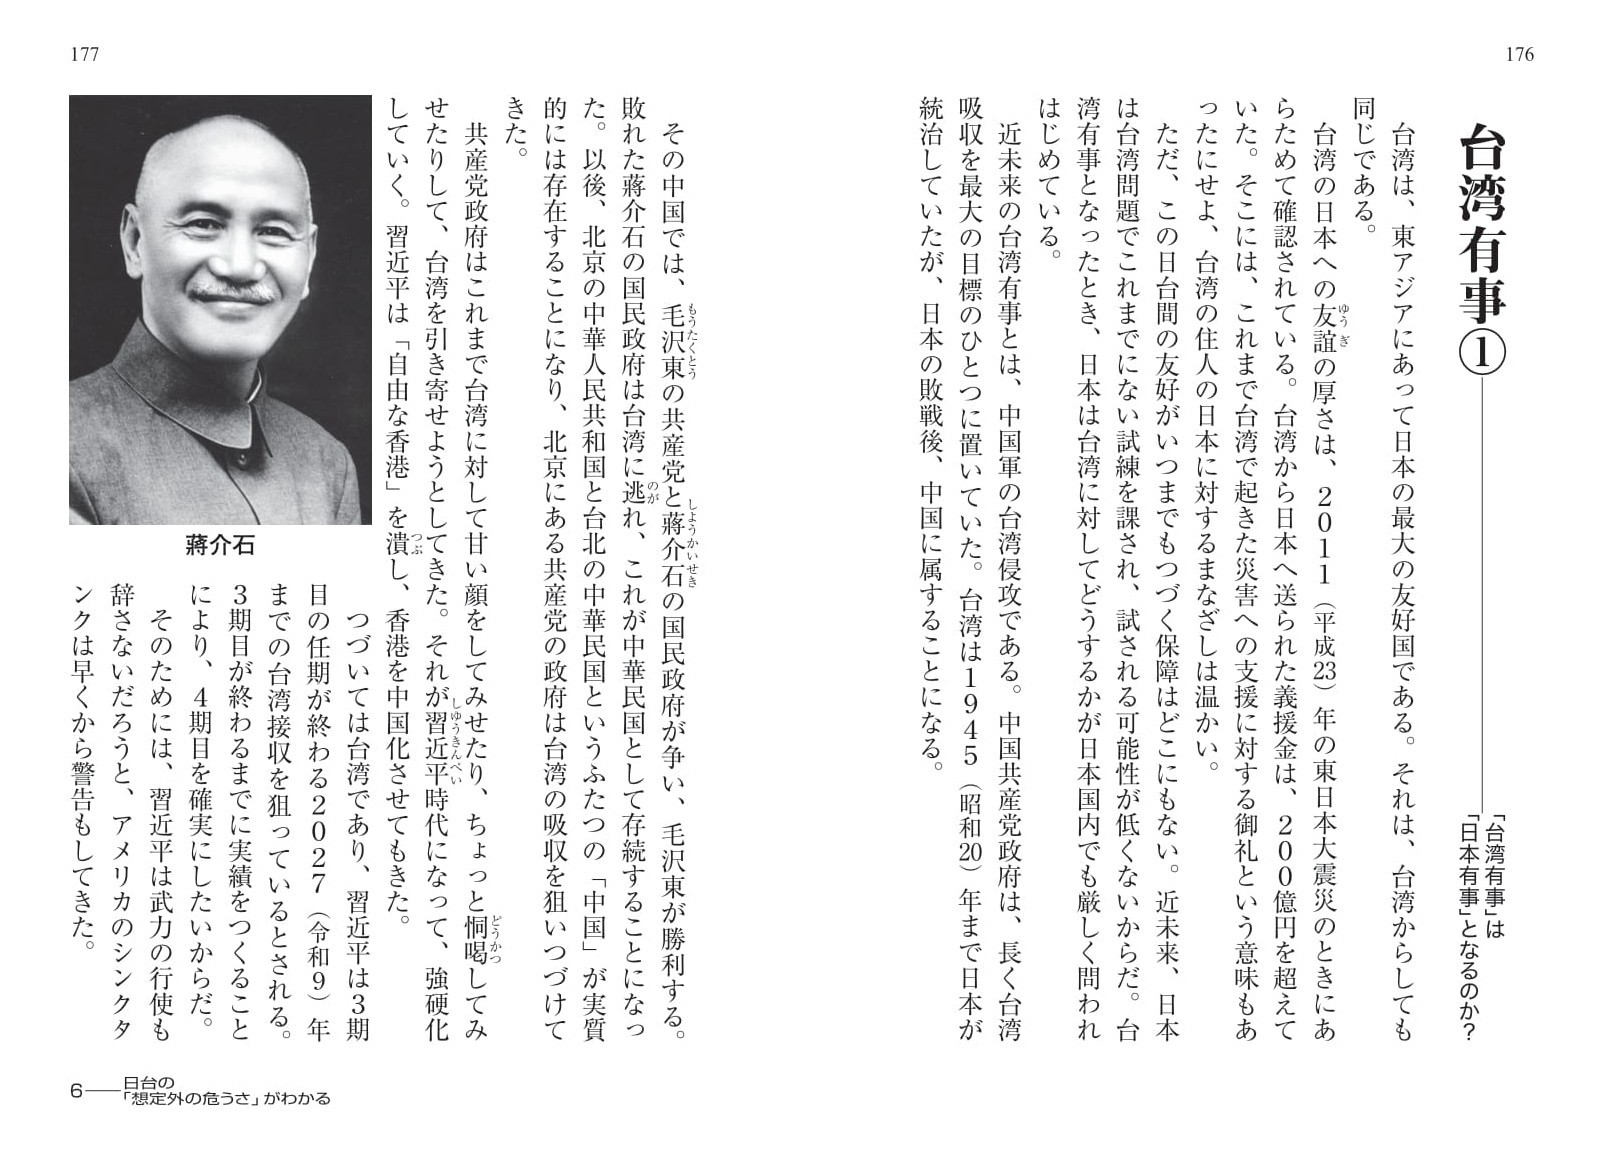 176
台湾有事①
「台湾有事」は
「日本有事」となるのか？
台湾は、東アジアにあって日本の最大の友好国である。それは、台湾からしても
同じである。
台湾の日本への友誼の厚さは、2011（平成23）年の東日本大震災のときにあ
ゆうぎ
らためて確認されている。台湾から日本へ送られた義援金は、200億円を超えて
いた。そこには、これまで台湾で起きた災害への支援に対する御礼という意味もあ
ったにせよ、台湾の住人の日本に対するまなざしは温かい。
ただ、この日台間の友好がいつまでもつづく保障はどこにもない。近未来、日本
は台湾問題でこれまでにない試練を課され、試される可能性が低くないからだ。台
湾有事となったとき、日本は台湾に対してどうするかが日本国内でも厳しく問われ
はじめている。
近未来の台湾有事とは、中国軍の台湾侵攻である。中国共産党政府は、長く台湾
吸収を最大の目標のひとつに置いていた。台湾は1945（昭和20）年まで日本が
統治していたが、日本の敗戦後、中国に属することになる。
177
その中国では、毛沢東の共産党と蔣介石の国民政府が争い、毛沢東が勝利する。
もうたくとう
しようかいせき
敗れた蔣介石の国民政府は台湾に逃れ、これが中華民国として存続することになっ
のが
た。以後、北京の中華人民共和国と台北の中華民国というふたつの「中国」が実質
的には存在することになり、北京にある共産党の政府は台湾の吸収を狙いつづけて
きた。
共産党政府はこれまで台湾に対して甘い顔をしてみせたり、ちょっと恫喝してみ
どうかつ
せたりして、台湾を引き寄せようとしてきた。それが習近平時代になって、強硬化
しゆうきんぺい
していく。習近平は「自由な香港」を潰し、香港を中国化させてもきた。
つぶ
つづいては台湾であり、習近平は3期
目の任期が終わる2027（令和9）年
までの台湾接収を狙っているとされる。
3期目が終わるまでに実績をつくること
により、4期目を確実にしたいからだ。
そのためには、習近平は武力の行使も
辞さないだろうと、アメリカのシンクタ
ンクは早くから警告もしてきた。
蔣介石
6──日台の
「想定外の危うさ」がわかる